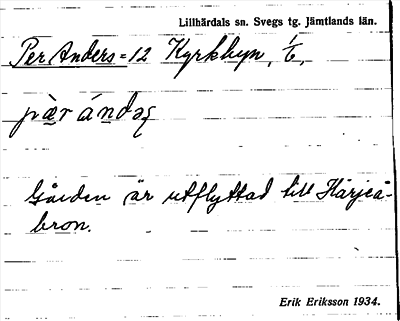 Lillhärdals sn. Svegs tg. Jämtlands län.
Per Anders=12 Kyrkbyn, 1/6.
pæ̀r ándəş
Gården är utflyttad till Härjeå-
bron.
Erik Eriksson 1934.